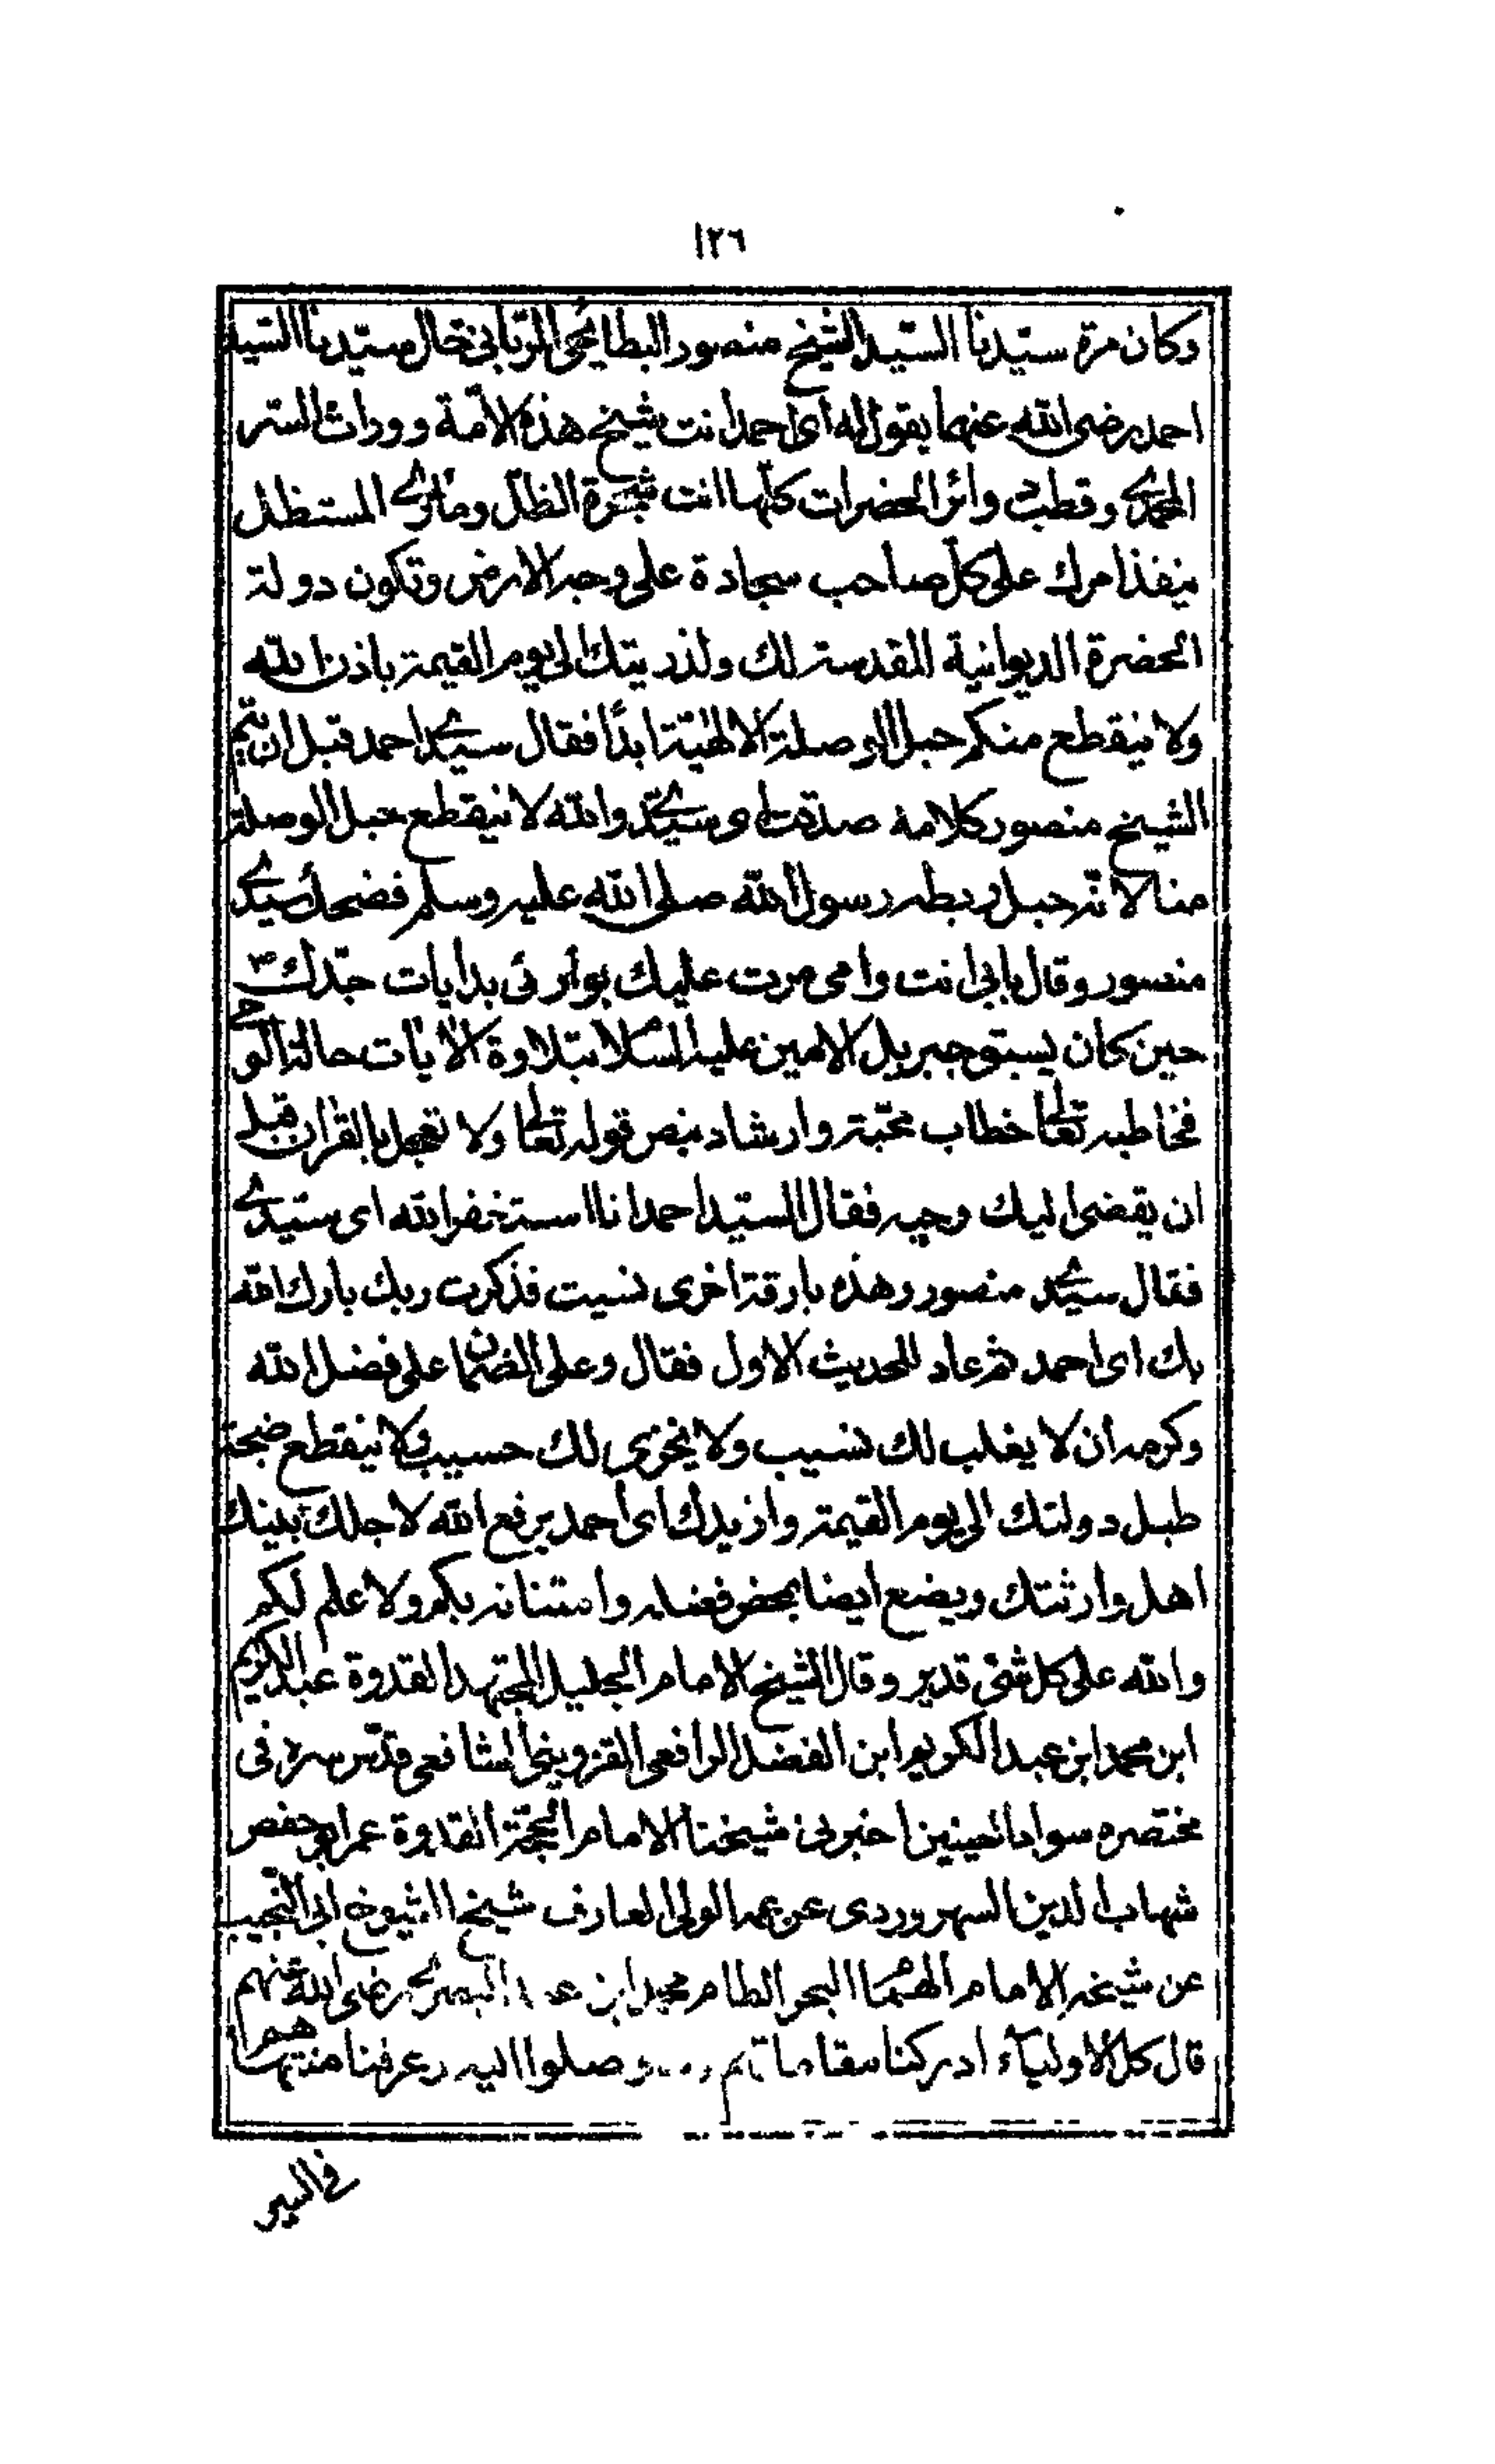 ١٢٦
وكان مرة سيّدنا السّيد الشيخ منصور البطايحى الرّبانى خال سيّدنا السّيد
احمد رضى الله عنهما يقول له اى احمد انت شيخ هذه الامّة ووراث السّر
المحمّدى وقطب دوائر الحضرات كلّها انت شجرة الظلّ ومأوى المستظل
ينفذ امرك على كلّ صاحب سجادة على وجه الارض وتكون دولة
الحضرة الديوانية المقدسة لك ولذريتك الى يوم القيمة باذن الله
ولا ينقطع منكم حبل الوصلة الالهيّة ابدًا فقال سيدى احمد قبل ان يتم
الشيخ منصور كلامه صدقت اى سيّدى والله لا ينقطع حبل الوصلة
منا لانّه حبل ربطه رسول الله صلى الله عليه وسلم فضحك سيدى
منصور وقال بابى انت وامى مرت عليك بوارئ بدايات جدّك ص
حين كان يسبق جبريل الامين عليه السّلام بتلاوة الآيات حالة الوحى
فخاطبه تعالى خطاب محبّة وارشاد بنص قوله تعالى ولا تعجل بالقرآن من قبل
ان يقضى اليك وحيه فقال السّيد احمد انا استغفر الله اى سيّدى
فقال سيدى منصور وهذه بارقة اخرى نسيت فذكرت ربك بارك الله
بك اى احمد ثم عاد للحديث الاول فقال وعلى الضمان على فضل الله
وكرمه ان لا يغلب لك نسيب ولا يخزى لك حسيب ولا ينقطع ضجة
طبل دولتك الى يوم القيمة وازيدك اى احمد يرفع الله لاجلك بينك
اهل وارثتك ويضع ايضا بمحض فضله وامتنانه بكم ولا علم لكم
والله على كل شئ قدير وقال الشيخ الامام الجليل المجتهد القدوة عبد الكريم
ابن محمد ابن عبد الكريم ابن الفضل الرافعى القزوينى الشافعى قدّس سره فى
مختصره سواد العينين اخبرنى شيخنا الامام الحجّة القدوة عمر ابو حفص
شهاب الدين السهروردى عن عمه الولى العارف شيخ الشيوخ ابى النّجيب
عن شيخه الامام الهمام البحر الطام محمد ابن عبد البصرى رضى الله عنهم
قال كل الاولياء ادركنا مقاماتهم وصلوا اليه وعرفنا منتهاهم
فى السير